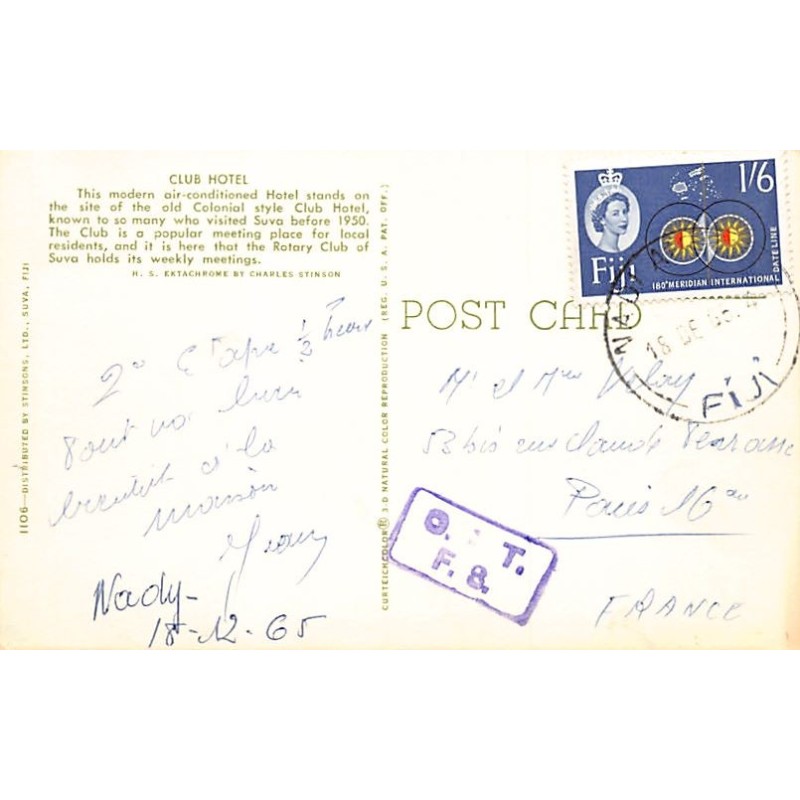 CLUB HOTEL
This modern air-conditioned Hotel stands on
the site of the old Colonial style Club Hotel,
known to so many who visited Suva before 1950.
The Club is a popular meeting place for local
residents, and it is here that the Rotary Club of
Suva holds its weekly meetings.
H. S. EKTACHROME BY CHARLES STINSON
1106—DISTRIBUTED BY STINSONS, LTD., SUVA, FIJI
2° Etape ½ heure
tout va
à la
maison
Nady-
18-12-65
CURTEICHCOLOR® 3-D NATURAL COLOR REPRODUCTION (REG. U. S. A. PAT. OFF.)
POST CARD
1/6
Fiji
180° MERIDIAN INTERNATIONAL
DATE LINE
18 DE 65
FIJI
Mr et Mme
53 bis rue Claude Terrasse
Paris 16
FRANCE
O. T.
F. 8.